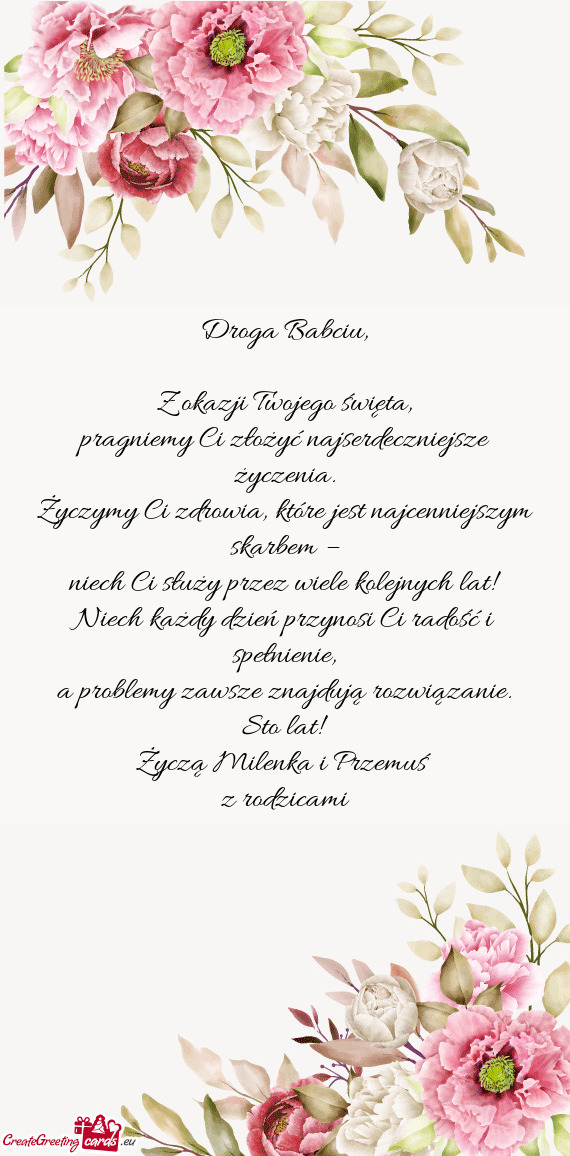 Droga Babciu,
Z okazji Twojego święta,
pragniemy Ci złożyć najserdeczniejsze
życzenia.
Życzymy Ci zdrowia, które jest najcenniejszym
skarbem –
niech Ci służy przez wiele kolejnych lat!
Niech każdy dzień przynosi Ci radość i
spełnienie,
a problemy zawsze znajdują rozwiązanie.
Sto lat!
Życzą Milenka i Przemuś
z rodzicami
CreateGreeting cards .eu